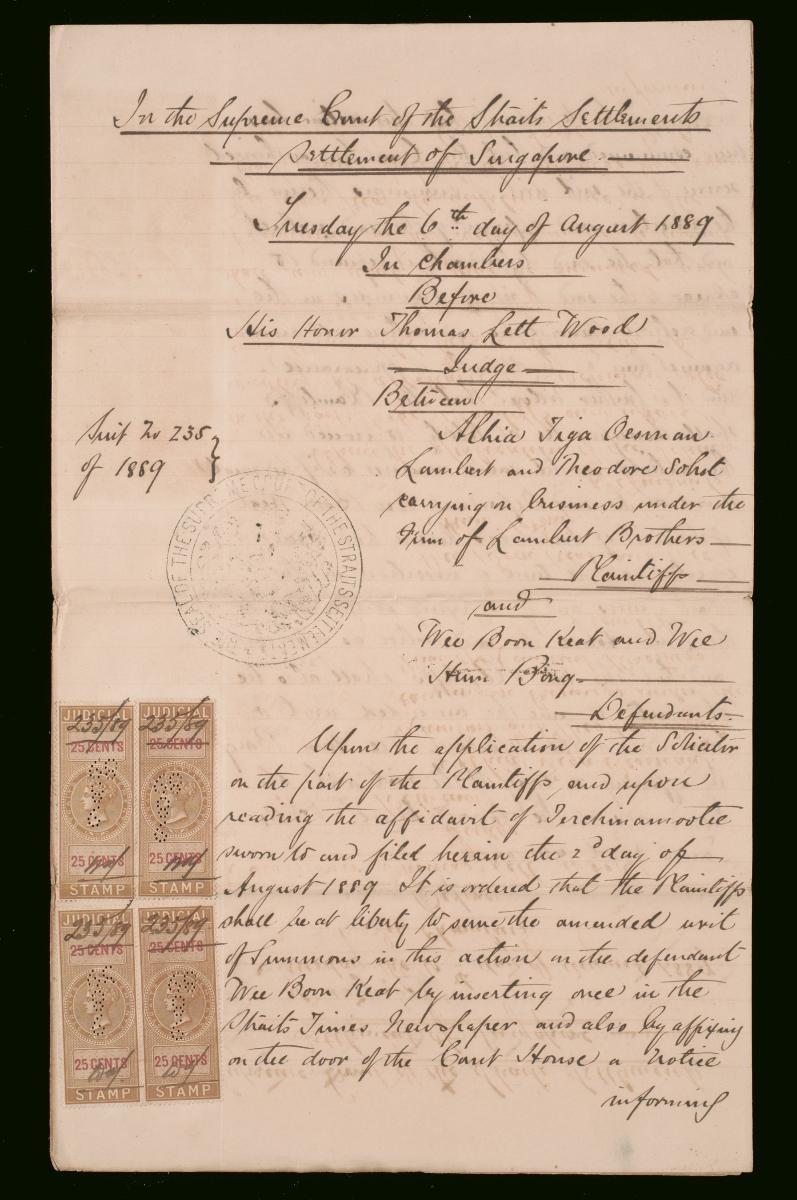 In the Supreme Court of the Straits Settlements
Settlement of Singapore
Tuesday the 6th day of August 1889
In Chambers
Before
His Honor Thomas Lett Wood
Judge
Between
Suit No 235
of 1889
Athia Tiga Oesman
Lambert and Theodore Sohst
carrying on business under the
Firm of Lambert Brothers
Plaintiffs
and
Wee Boon Keat and Wee
Him Bong
Defendants
SEAL OF THE SUPREME COURT OF THE STRAITS SETTLEMENTS
Upon the application of the Solicitor
on the part of the Plaintiffs and upon
reading the affidavit of
sworn to and filed herein the 2d day of
August 1889 It is ordered that the Plaintiffs
shall be at liberty to serve the amended writ
of Summons in this action on the defendant
Wee Boon Keat by inserting once in the
Straits Times Newspaper and also by affixing
on the door of the Court House a notice
informing
JUDICIAL JUDICIAL
235/89 235/89
25 CENTS 25 CENTS
25 CENTS 25 CENTS
STAMP STAMP
JUDICIAL JUDICIAL
235/89 235/89
25 CENTS 25 CENTS
25 CENTS 25 CENTS
STAMP STAMP